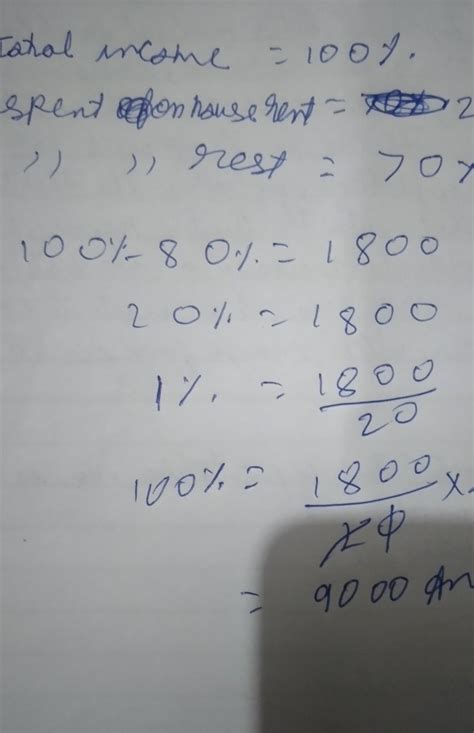 Total income = 100%.
spent on house rent = 2
,, ,, rest = 70%
100% - 80% = 1800
20% = 1800
1% = 1800/20
100% = 1800/20 ×
= 9000 An